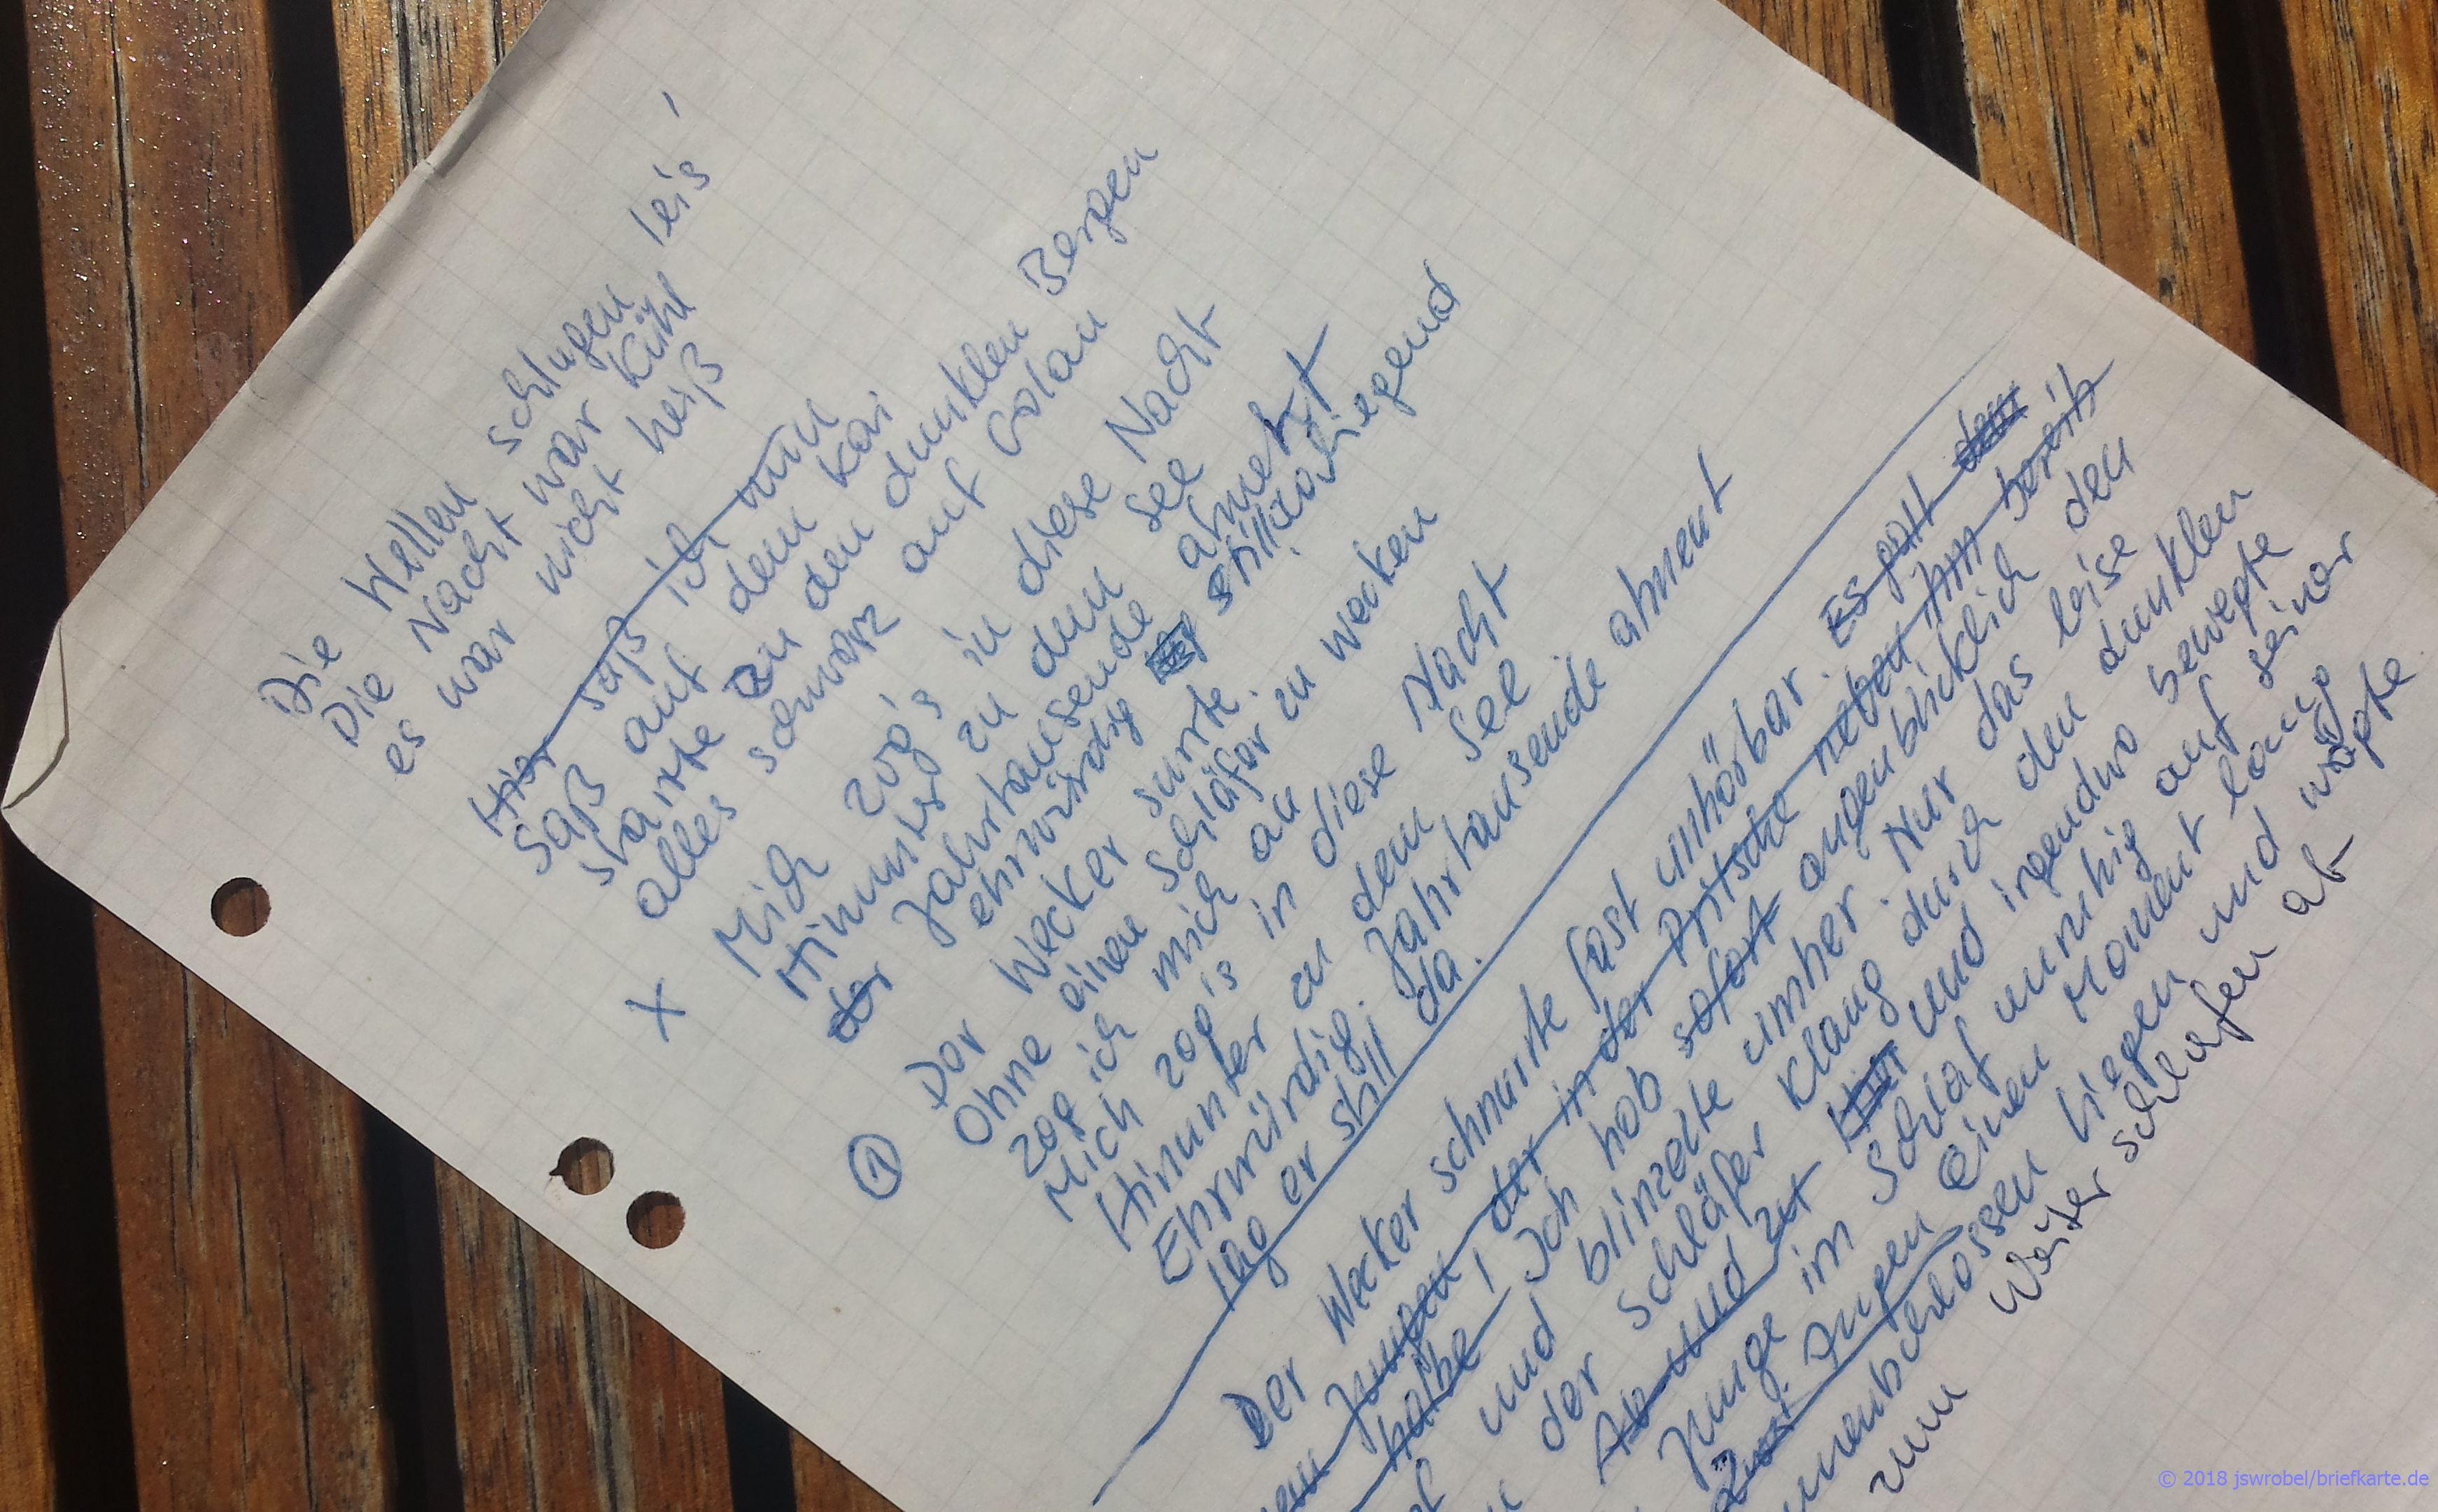 Die Wellen schlugen leis',
Die Nacht war kühl
es war nicht heiß
Hier saß ich nun
Saß auf dem Kai
starrte zu den dunklen Bergen
alles schwarz auf Golan
X Mich zog's in diese Nacht
Hinunter zu dem See
der Jahrtausende ahnet
ehrwürdig stillaliegend
① Der Wecker surrte.
Ohne einen Schläfer zu wecken
zog ich mich an
Mich zog's in diese Nacht
Hinunter an dem See.
Ehrwürdig. Jahrtausende ahnent
lag er still da.
Der Wecker schnurrte fast unhörbar. Es galt den
Jungen, der in der Pritsche neben ihm bereits
habe, Ich hob sofort augenblicklich den
und blinzelte umher. Nur das leise
der Schläfer klang durch den dunklen
Ab und zu und irgendwo bewegte
Junge im Schlaf unruhig auf seiner
Zwei Augen Einen Moment lang
liegen und wägte
zum Weiter schlafen ab
© 2018 jswrobel/briefkarte.de